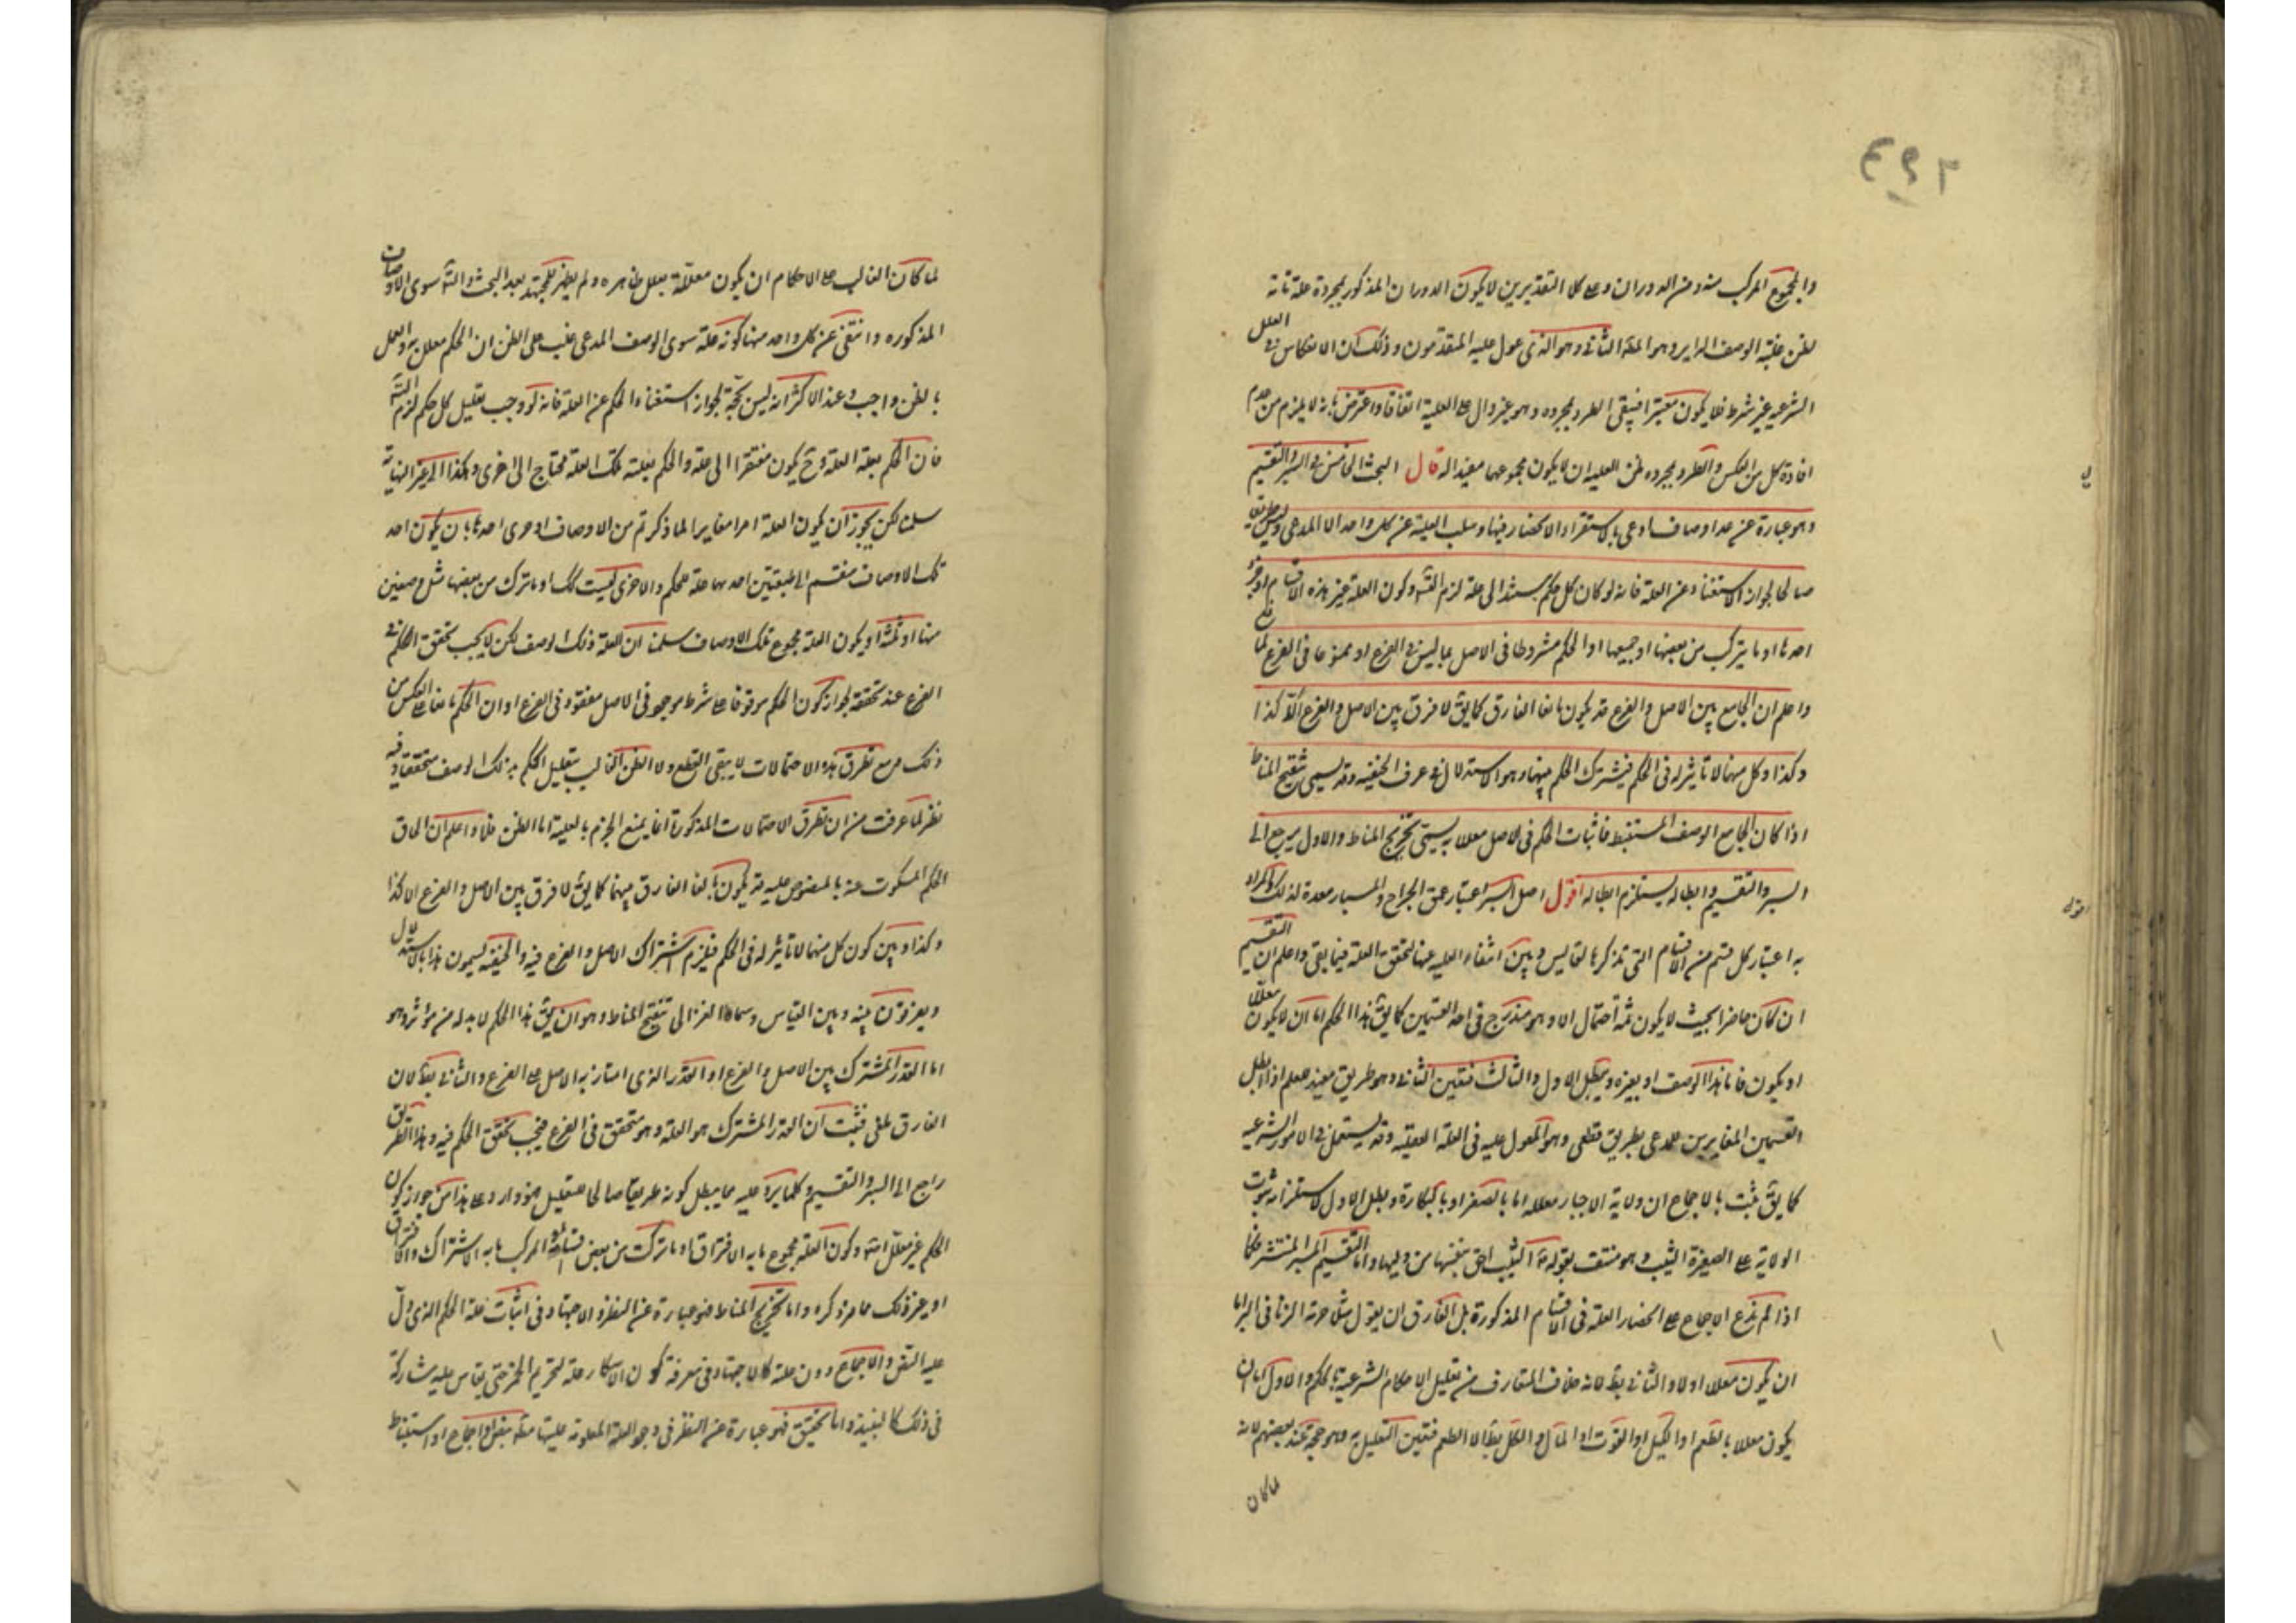 والمجموع المركب منه ومن الدوران وعلى كلا التقديرين لا يكون الدوران المذكور بمجرده علة تامة
لظن علية الوصف الداير وهو العلة الثانى وهو الذى عول عليه المتقدمون وذلك لان الانعكاس فى العلل
الشرعية غير شرط فلا يكون معتبرا فيبقى الطرد بمجرده وهو غير دال على العلية اتفاقا واعترض بانه لا يلزم من عدم
افادة كل من العكس والطرد بمجرده ظن العلية ان لا يكون مجموعهما مفيدا له قال البحث الخامس فى السبر والتقسيم
وهو عبارة عن عد اوصاف ادعى بالاستقراء الانحصار فيها وسلب العلية عن كل واحد الا المدعى وليس طريقا
صالحا لجواز الاستغناء عن العلة فانه لو كان كل حكم يستند الى علة لزم التسلسل وكون العلة غير هذه الاقسام او جزء
احدها او ما يتركب من بعضها او جميعها او الحكم مشروطا فى الاصل بما ليس فى الفرع او ممنوعا فى الفرع لمانع
واعلم ان الجامع بين الاصل والفرع قد يكون بالغا الفارق كما يق لا فرق بين الاصل والفرع الا كذا
وكذا وكل منهما لا تاثير له فى الحكم فيشترك الحكم بينهما وهو الاستدلال فى عرف الحنفية وقد يسمى تنقيح المناط
اذا كان الجامع الوصف المستنبط فاثبات الحكم فى الاصل معللا به يسمى تخريج المناط والاول يرجع الى
السبر والتقسيم وابطاله يستلزم ابطاله اقول اصل السبر اعتبار عمق الجراح والمسبار معدة لذلك والمراد
به اعتبار كل قسم من الاقسام التى تذكرها لقايس وبين انتفاء العلية عنها لتحقق العلة فيما بقى واعلم ان التقسيم
ان كان حاصرا بحيث لا يكون ثمة احتمال الا وهو مندرج فى احد القسمين كما يق هذا الحكم اما ان لا يكون معللا
او يكون فاما بهذا الوصف او بغيره ويبطل الاول والثالث فتعين الثانى وهو طريق مفيد للعلم اذا بطل
القسمين المغايرين للمدعى بطريق قطعى وهو المعول عليه فى العلة العقلية وقد يستعمل فى الامور الشرعية
كما يق ثبت بالاجماع ان ولاية الاجبار معللة اما بالصغر او بالبكارة وبطل الاول لاستلزامه ثبوت
الولاية على الصغيرة الثيب وهو منتف بقوله الثيب احق بنفسها من وليها واما التقسيم المنتشر فكما
اذا لم ندع الاجماع على انحصار العلة فى الاقسام المذكورة بل الفارق ان يقول مثلا حرمة الربا فى البر اما
ان يكون معللا او لا والثانى بط لانه خلاف المتعارف من تعليل الاحكام الشرعية بالحكم والاول اما ان
يكون معللا بالطعم او الكيل او القوت او المال والكل بط الا الطعم فتعين التعليل به وهو حجة عند بعضهم لانه
لما كان
لما كان الغالب على الاحكام ان يكون معللة بعلل ظاهرة ولم يظهر للمجتهد بعد البحث والتام سوى الاوصاف
المذكورة وانتفى عن كل واحد منها كونه علة سوى الوصف المدعى غلب على الظن ان الحكم معلل به والعمل
بالظن واجب وعند الاكثر انه ليس بحجة لجواز استغناء الحكم عن العلة فانه لو وجب تعليل كل حكم لزم التسلسل
فان الحكم بعلة العلة وح يكون مفتقرا الى علة والحكم بعلية تلك العلة محتاج الى اخرى وهكذا الى غير النهاية
سلمنا لكن يجوز ان يكون العلة امرا مغايرا لما ذكرتم من الاوصاف او جزء احدها بان يكون احد
تلك الاوصاف منقسم الى طبقتين احدهما علة للحكم والاخرى ليست كك او ما تركب من بعضها مثل وصفين
منها او ثلثة او يكون العلة مجموع تلك الاوصاف سلمنا ان العلة ذلك الوصف لكن لا يجب تحقق الحكم فى
الفرع عند تحققه لجواز كون الحكم موقوفا على شرط موجود فى الاصل مفقود فى الفرع او ان الحكم مانعا على العكس من
ذلك ومع تطرق هذه الاحتمالات لا يبقى القطع ولا الظن الغالب بتعليل الحكم بذلك الوصف متحققا وفيه
نظر لما عرفت من ان تطرق الاحتمالات المذكورة انما يمنع الجزم بالعلية اما الظن فلا واعلم ان الحاق
الحكم المسكوت عنه بالمنصوص عليه قد يكون بالغا الفارق بينهما كما يق لا فرق بين الاصل والفرع الا كذا
وكذا وبين كون كل منهما لا تاثير له فى الحكم فيلزم اشتراك الاصل والفرع فيه والحنفية يسمون هذا بالاستدلال
ويفرقون بينه وبين القياس وسماه الغزالى تنقيح المناط وهو ان يق هذا الحكم لا بد له من مؤثر وهو
اما القدر المشترك بين الاصل والفرع او القدر الذى امتاز به الاصل على الفرع والثانى بط لان
الفارق ملغى فثبت ان القدر المشترك هو العلة وهو متحقق فى الفرع فيجب تحقق الحكم فيه وهذا الطريق
راجع الى السبر والتقسيم وكلما يرد عليه مما يبطل كونه طريقا صالحا للتعليل فهو وارد على هذا من جواز كون
الحكم غير معلل البتة وكون العلة مجموع ما به الافتراق او ما تركب من بعض اقسامه او المركب ما به الاشتراك والافتراق
او غير ذلك مما مر ذكره واما تخريج المناط فهو عبارة عن النظر والاجتهاد فى اثبات علة الحكم الذى دل
عليه النص والاجماع دون علته كالاجتهاد فى معرفة كون الاسكار علة لتحريم الخمر حتى يقاس عليه مشاركه
فى ذلك كالنبيذ واما تحقيق فهو عبارة عن النظر فى وجود العلة المعلومة عليتها بنص او اجماع او استنباط